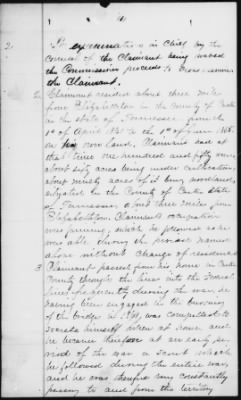 2
The examination in Chief by the
counsel of the Claimant being waived
the Commissioner proceeds to cross-examine
the Claimant.
2 Claimant resided about three miles
from Elizabethton in the County of Carter
in the State of Tennessee from the
1st of April 1861 to the 1st of June 1865.
on his own land. Claimant's said
three one hundred and fifty acres
about sixty acres being under cultivation
about ninety acres of it being woodland,
situated in the County of Carter State
of Tennessee about three miles from
Elizabethton. Claimant's occupation
was farming, which he pursued as he
was able during the period named
alone without change of residence
3 Claimant passed from his home in Carter
County through the lines into the Federal
lines frequently during the war, he
having been engaged in the burning
of the bridge in 1861, was compelled to
himself when at home and
he became therefore at an early period
of the war a Scout which
he followed during the entire war,
and he was therefore constantly
passing to and from the territory